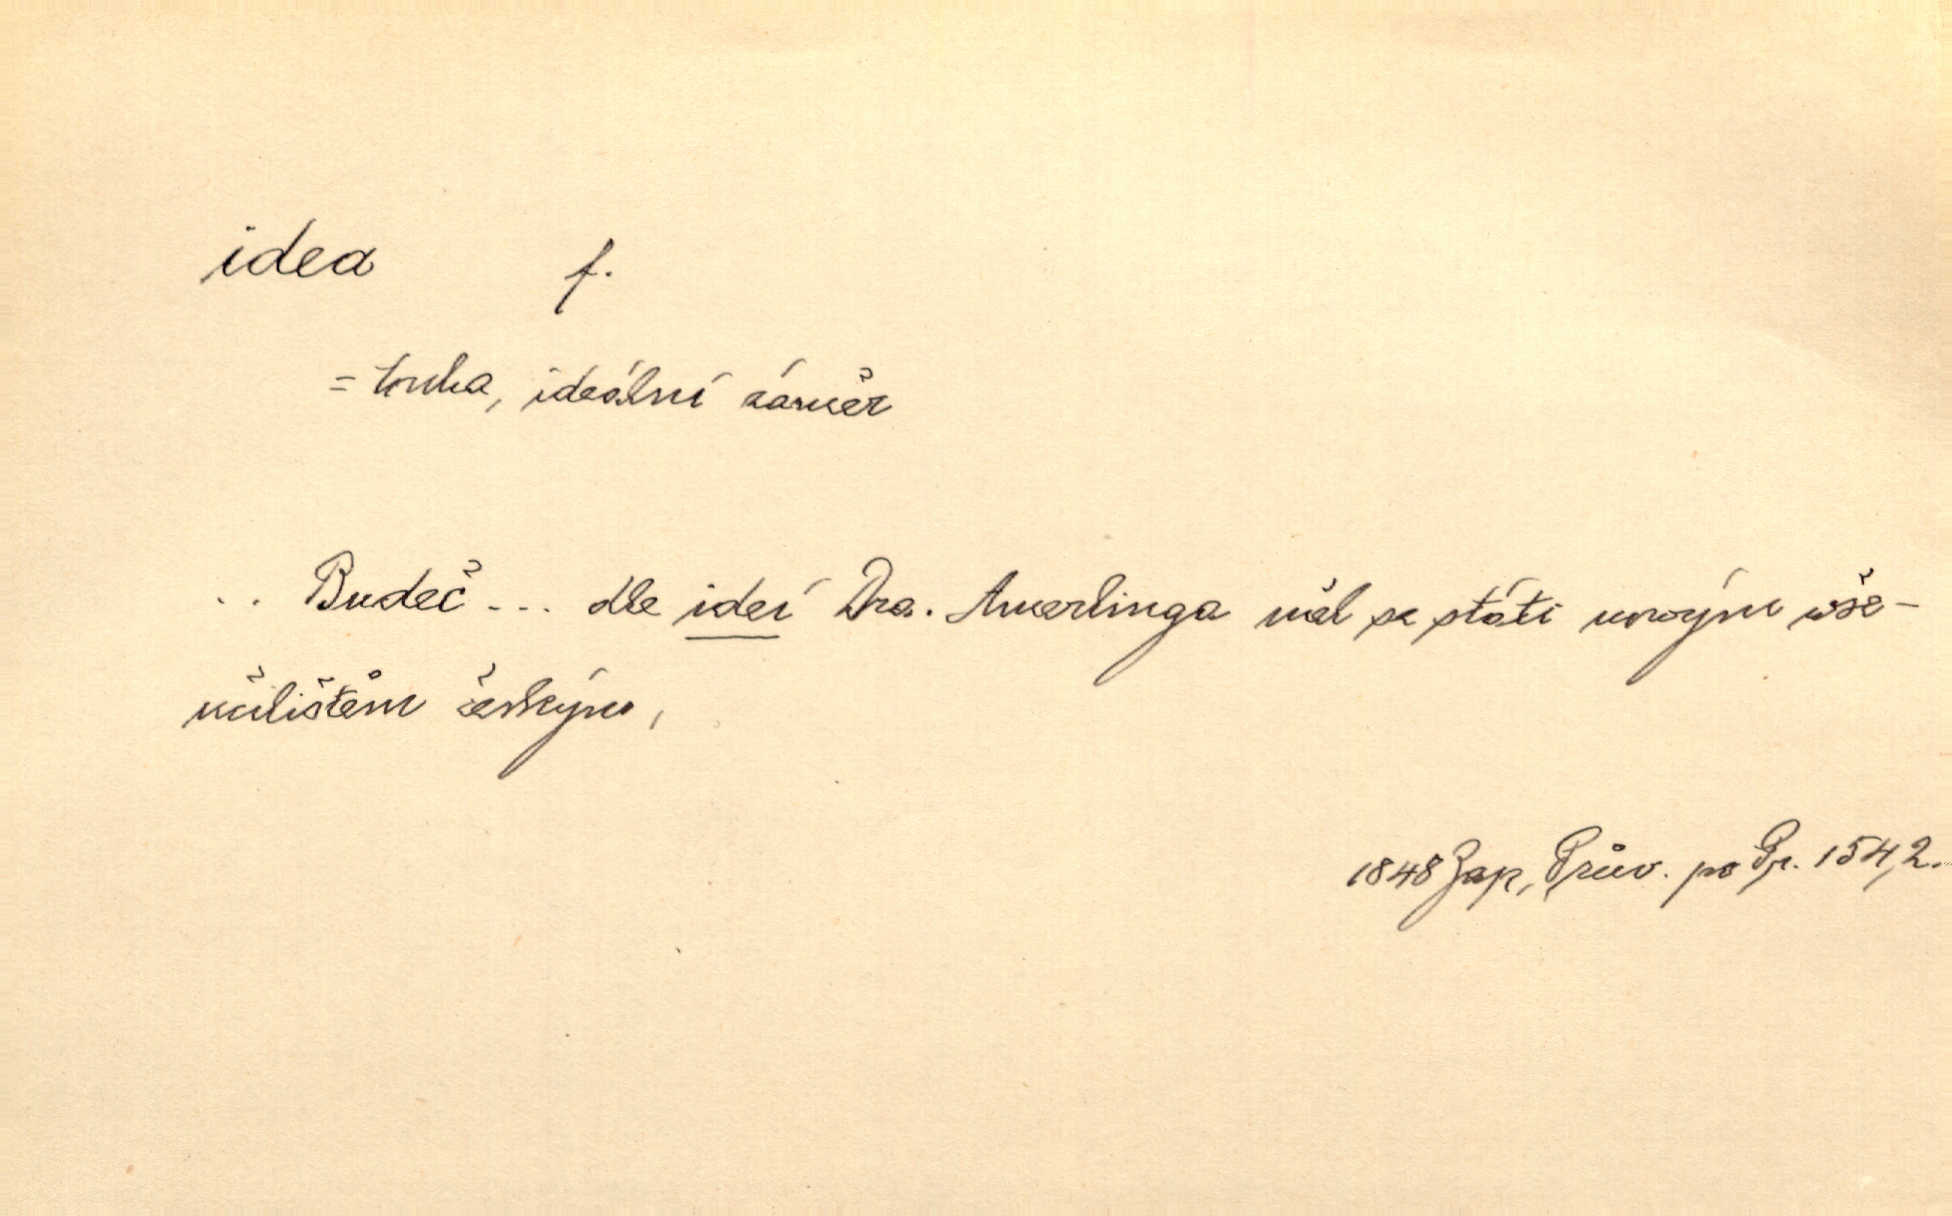 idea f.
= touha, ideální záměr
.. Budeč --- dle ideí Dra. Amerlinga měl se státi novým wše-
učilištěm českým,
1848 Zap, Prův. po Pr. 154,2.